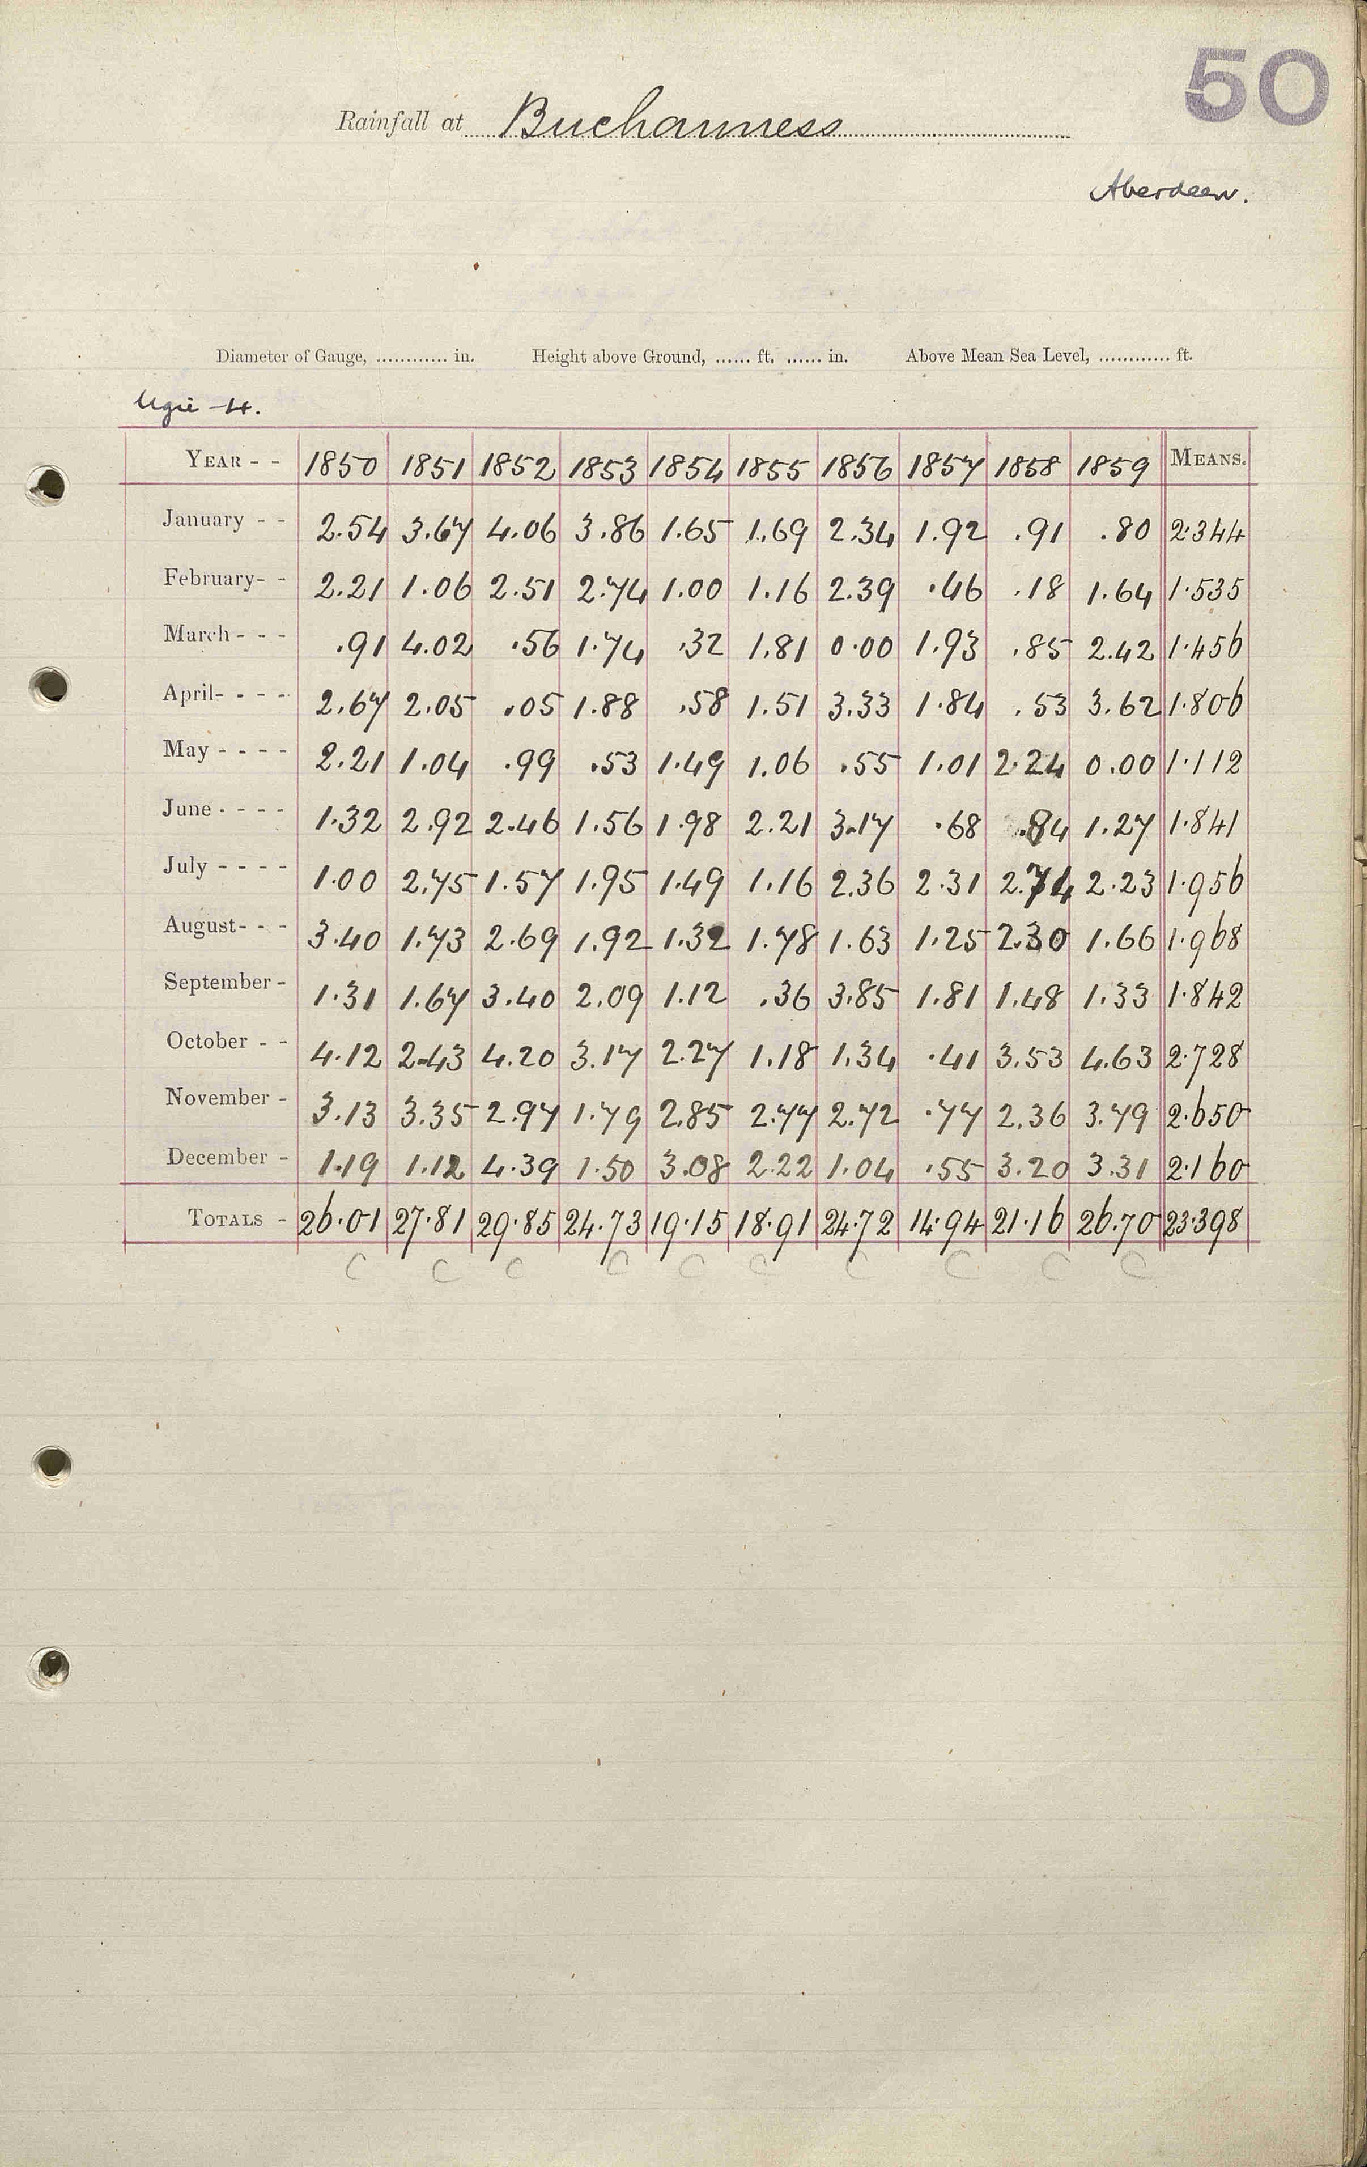 50
Rainfall at Buchanness
Aberdeen.
Diameter of Gauge, ............ in. Height above Ground, ...... ft. ...... in. Above Mean Sea Level, ............ ft.
Ugie H.
YEAR - - 1850 1851 1852 1853 1854 1855 1856 1857 1858 1859 MEANS.
January - - 2.54 3.67 4.06 3.86 1.65 1.69 2.34 1.92 .91 .80 2.344
February- - 2.21 1.06 2.51 2.74 1.00 1.16 2.39 .46 .18 1.64 1.535
March - - - .91 4.02 .56 1.74 .32 1.81 0.00 1.93 .85 2.42 1.456
April- - - - 2.67 2.05 .05 1.88 .58 1.51 3.33 1.84 .53 3.62 1.806
May - - - - 2.21 1.04 .99 .53 1.49 1.06 .55 1.01 2.24 0.00 1.112
June - - - - 1.32 2.92 2.46 1.56 1.98 2.21 3.17 .68 .84 1.27 1.841
July - - - - 1.00 2.75 1.57 1.95 1.49 1.16 2.36 2.31 2.74 2.23 1.956
August- - - 3.40 1.73 2.69 1.92 1.32 1.78 1.63 1.25 2.30 1.66 1.968
September - 1.31 1.67 3.40 2.09 1.12 .36 3.85 1.81 1.48 1.33 1.842
October - - 4.12 2.43 4.20 3.17 2.27 1.18 1.34 .41 3.53 4.63 2.728
November - 3.13 3.35 2.97 1.79 2.85 2.77 2.72 .77 2.36 3.79 2.650
December - 1.19 1.12 4.39 1.50 3.08 2.22 1.04 .55 3.20 3.31 2.160
TOTALS - 26.01 27.81 29.85 24.73 19.15 18.91 24.72 14.94 21.16 26.70 23.398
C C C C C C C C C C